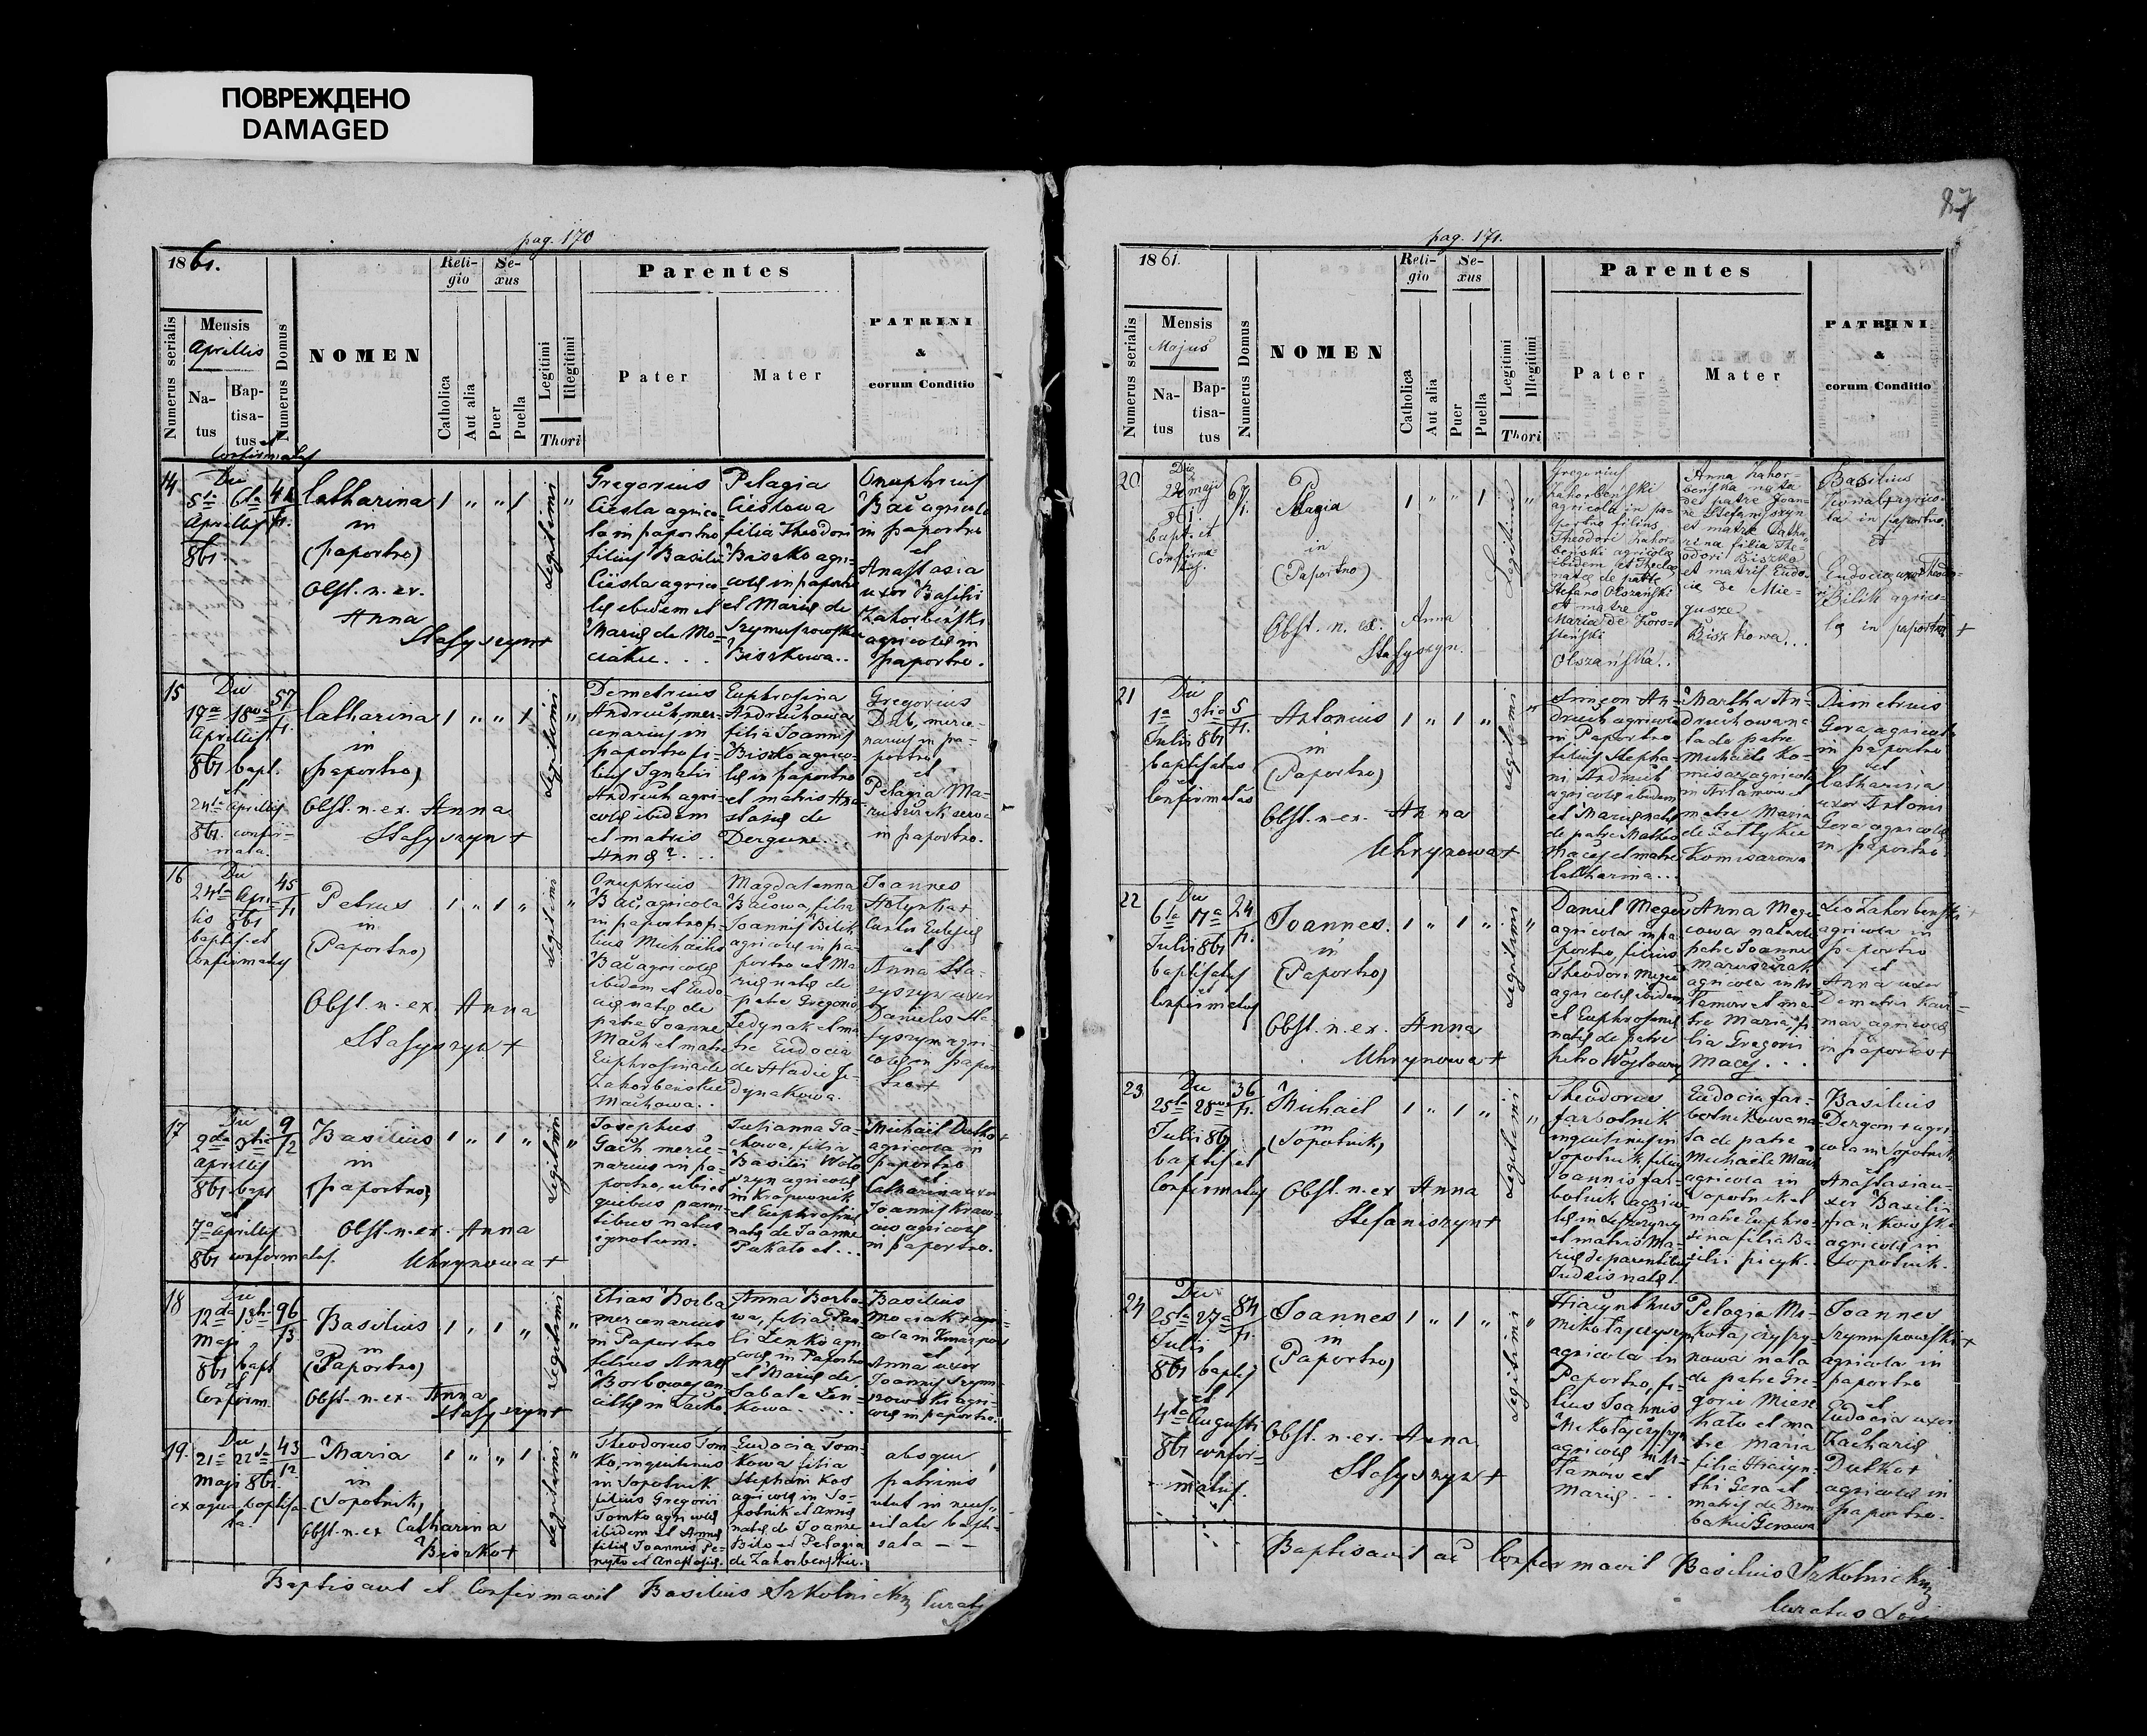 ПОВРЕЖДЕНО
DAMAGED
pag. 170
1861.
Numerus serialis
Mensis
Aprilis
Na-
tus
Bap-
tisa-
tus et
Confirmatus
Numerus Domus
NOMEN
Reli-
gio
Catholica
Aut alia
Se-
xus
Puer
Puella
Legitimi
Illegitimi
Thori
Parentes
Pater
Mater
PATRINI
&
eorum Conditio
14
Die
5ta 6ta
Aprilis
861.
Catharina
in
(Paportno)
Obst. n. ex.
Anna
Stasyszyn +
1 „ „ 1
Legitimi
Gregorius
Ciesla agrico-
la in paportno
filius Basilii
Ciesla agrico-
lę ibidem et
Marię de Mo-
ciaków...
Pelagia
Cieslowa
filia Theodori
Biszko agri-
colę in paportno
et Marię de
Szymuszowskie
Biszkowa..
Onuphrius
Bać agricola
in paportno
et
Anastasia
uxor Basilii
Zahorbenski
agricolę in
paportno.
15
Die
17a 18va
Aprilis
861 bapt.
et
24ta Aprilis
861. confir-
mata.
57
Catharina
in
(paportno)
Obst. n. ex. Anna
Stasyszyn +
1 „ „ 1
Legitimi
Demetrius
Andruch mer-
cenarius in
paportno fi-
lius Ignatii
Andruch agri-
colę ibidem
et matris
Annę ?...
Euphrosina
Andruchowa
filia Joannis
Biszko agrico-
lę in paportno
et matris Ana-
stasię de
Dergune...
Gregorius
Dub merce-
narius in pa-
portno
et
Pelagia Ma-
ruszczak serva
in paportno.
16
Die
24ta Apri-
lis 861
baptis. et
Confirmatus
45
Petrus
in
(Paportno)
Obst. n. ex. Anna
Stasyszyn +
1 „ 1 „
Legitimi
Onuphrius
Bać agricola
in paportno fi-
lius Michaelis
Bać agricolę
ibidem et Eudo-
cię natę de
patre Joanne
Mach et matre
Euphrosina de
Zahorbenskie
Machowa..
Magdalenna
Baćowa, filia
Joannis Bilik
agricolę in pa-
portno et Ma-
rię natę de
patre Gregorio
Jedynak et ma-
tre Eudocia
de Hladie Je-
dynakowa.
Joannes
Holynka +
Custos Ecclesię
et
Anna Sta-
syszyn uxor
Danielis Sta-
syszyn agri-
colę in papor-
tno +
17
Die
2da 3tia
Aprilis
861 bapt
et
7a Aprilis
861 confirmatus.
9
12
Basilius
in
(paportno)
Obst. n. ex. Anna
Uhrynowa +
1 „ 1 „
Legitimi
Josephus
Gach merce-
narius in pa-
portno, ubi et
quibus paren-
tibus natus
ignotum.
Julianna Ga-
chowa, filia
Basilii Woło-
szyn agricolę
in Kropiwnik
et Euphrosinę
natę de Joanne
Pukało et...
Michael Dutko +
agricola in
paportno
et
Catharina uxor
Joannis Kraw-
ciw agricolę
in paportno.
18
Die
12da 13tia
Maji
861 bapt
et
Confirm.
96
13
Basilius
in
(Paportno)
Obst. n. ex. Anna
Stasyszyn +
1 „ 1 „
Legitimi
Elias Borba
mercenarius
in Paportno
filius Annę
Borbowej an-
cillę in Lacko.
Anna Borbo-
wa, filia Pau-
li Zenko agri-
colę in Paportno
et Marię de
Sabala Zen-
kowa....
Basilius
Mociak + agri-
cola in Kniażpol
et
Anna uxor
Joannis Szym-
szowski agri-
colę in paportno.
19.
Die
21a 22da
Maji 861.
ex aqua baptisa-
ta.
43
12
Maria
in
(Sopotnik)
Obst. n. ex Catharina
Biszko +
1 „ „ 1
Legitimi
Theodorus Tom-
ko, inquilinus
in Sopotnik
filius Gregorii
Tomko agricolę
ibidem et Annę
filię Joannis Pe-
nyło et Anastasię.
Eudocia Tom-
kowa filia
Stephani Kos
agricolę in So-
potnik et Annę
natę de Joanne
Bilo et Pelagia
de Zahorbenskie.
absque
patrinis
utut in neces-
sitate bapti-
sata — —
Baptisavit et Confirmavit Basilius Szkolnicky Curatus
87
pag. 171.
1861.
Numerus serialis
Mensis
Majus
Na-
tus
Bap-
tisa-
tus
Numerus Domus
NOMEN
Reli-
gio
Catholica
Aut alia
Se-
xus
Puer
Puella
Legitimi
Illegitimi
Thori
Parentes
Pater
Mater
PATRINI
&
eorum Conditio
20
Die
22 maji
861.
bapt. et
Confirma-
tus.
67
1.
Pelagia
in
(Paportno)
Obst. n. ex. Anna
Stasyszyn.
1 „ „ 1
Legitimi
Gregorius
Zahorbenski
agricola in pa-
portno filius
Theodori Zahor-
benski agricolę
ibidem et Theclę
natę de patre
Stefano Olszański
et matre
Maria de Koro-
steński
Olszańska..
Anna Zahor-
benska nata
de patre Joan-
ne Stefaniszyn
et matre Catha-
rina filia The-
odori Biszko
et matris Eudo-
cię de Mie-
gusze
Biszkowa...
Basilius
Kowal + agrico-
la in paportno.
et
Eudocia uxor Theodo-
ri Bilik agrico-
lę in paportno +
21
Die
1a 3tia
Julii 861
baptisatus
et
Confirmatus
5
Antonius
in
(Paportno)
Obst. n. ex. Anna
Uhrynowa +
1 „ 1 „
Legitimi
Simeon An-
druch agricola
in Paportno
filius Stepha-
ni Andruch
agricolę ibidem
et Marię natę
de patre Matheo
Maćej et matre
Catharina...
Martha An-
druchowa na-
ta de patre
Michaele Ko-
misar agricola
in Artamow et
matre Maria
de Żołtykie
Komisarowa
Dimetrius
Gera agricola
in paportno
et
Catharina
uxor Antonii
Gera agricolę
in paportno
22
Die
6ta 17a
Julii 861
baptisatus
et
Confirmatus
24
Joannes.
in
(Paportno)
Obst. n. ex. Anna
Uhrynowa +
1 „ 1 „
Legitimi
Daniel Megeć
agricola in pa-
portno, filius
Theodori Megeć
agricolę ibidem
et Euphrosinę
natę de patre
Petro Wojtowicz
Anna Mege-
cowa nata de
patre Joanne
Maruszczak
agricola in Ar-
tamow et ma-
tre Maria, fi-
lia Gregorii
Macej...
Leo Zahorbenski +
agricola in
paportno
et
Anna uxor
Demetrii Kacz-
mar agricolę
in paportno +
23.
Die
25ta 28va
Julii 861
baptis et
Confirmatus
36
Michael
in
(Sopotnik)
Obst. n. ex Anna
Stefaniszyn +
1 „ 1 „
Legitimi
Theodorus
Farbotnik
inquilinus in
Sopotnik, filius
Joannis Far-
botnik agrico-
lę in Leszczyny
et matris Ma-
rię de parentibus
Judeis natę.
Eudocia Far-
botnikowa na-
ta de patre
Michaele Mach
agricola in
Sopotnik et
matre Euphro-
sina filia Ba-
silii Picyk..
Basilius
Dergon + agri-
cola in Sopotnik
et
Anastasia u-
xor Basilii
Frankowski
agricolę in
Sopotnik.
24
Die
25ta 27a
Julii
861 baptis
et
4ta Augusti
861 confir-
matus.
84
Joannes
in
(Paportno)
Obst. n. ex. Anna
Stasyszyn +
1 „ 1 „
Legitimi
Hiacynthus
Mikołajczyszyn
agricola in
Paportno, fi-
lius Joannis
Mikołajczyszyn
agricolę in Ar-
tamow et
Marię...
Pelagia Mi-
kołajczyszy-
nowa nata
de patre Gre-
gorio Miesz-
kało et ma-
tre Maria
filia Hiacyn-
thi Gera et
matris de Dem-
bakie Gerowa
Joannes
Szymuszowski +
agricola in
paportno
et
Eudocia uxor
Zacharię
Dutko +
agricolę in
paportno.
Baptisavit ac Confirmavit Basilius Szkolnicky
Curatus